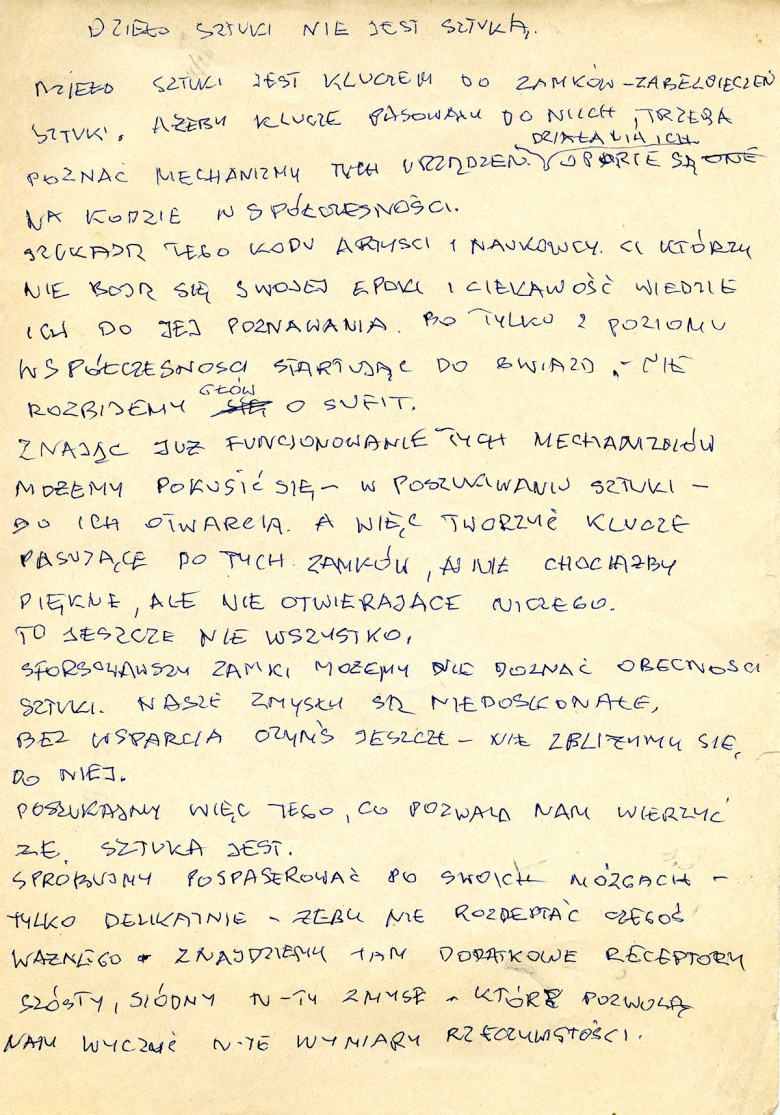 DZIEŁO SZTUKI NIE JEST SZTUKĄ.
DZIEŁO SZTUKI JEST KLUCZEM DO ZAMKÓW – ZABEZPIECZEŃ
SZTUKI. AŻEBY KLUCZE PASOWAŁY DO NICH, TRZEBA
DZIAŁANIA ICH
POZNAĆ MECHANIZMY TYCH URZĄDZEŃ. OPARTE SĄ ONE
NA KODZIE WSPÓŁCZESNOŚCI.
SZUKAJĄ TEGO KODU ARTYŚCI I NAUKOWCY. CI KTÓRZY
NIE BOJĄ SIĘ SWOJEJ EPOKI I CIEKAWOŚĆ WIEDZIE
ICH DO JEJ POZNAWANIA. BO TYLKO Z POZIOMU
WSPÓŁCZESNOSCI STARTUJĄC DO GWIAZD, – NIE
GŁÓW
ROZBIJEMY SIĘ O SUFIT.
ZNAJĄC JUŻ FUNCJONOWANIE TYCH MECHANIZMÓW
MOŻEMY POKUSIĆ SIĘ – W POSZUKIWANIU SZTUKI –
DO ICH OTWARCIA. A WIĘC TWORZYĆ KLUCZE
PASUJĄCE DO TYCH ZAMKÓW, A NIE CHOCIAŻBY
PIĘKNE, ALE NIE OTWIERAJĄCE NICZEGO.
TO JESZCZE NIE WSZYSTKO.
SFORSOWAWSZY ZAMKI MOŻEMY NIE DOZNAĆ OBECNOSCI
SZTUKI. NASZE ZMYSŁY SĄ NIEDOSKONAŁE,
BEZ WSPARCIA CZYMŚ JESZCZE – NIE ZBLIŻYMY SIĘ
DO NIEJ.
POSZUKAJMY WIĘC TEGO, CO POZWALA NAM WIERZYĆ
ŻE SZTUKA JEST.
SPRÓBUJMY POSPACEROWAĆ PO SWOICH MÓZGACH –
TYLKO DELIKATNIE – ŻEBY NIE ROZDEPTAĆ CZEGOŚ
WAŻNEGO – ZNAJDZIEMY TAM DODATKOWE RECEPTORY
SZÓSTY, SIÓDMY N-TY ZMYSŁ – KTÓRE POZWOLĄ
NAM WYCZUĆ N-TE WYMIARY RZECZYWISTOŚCI.